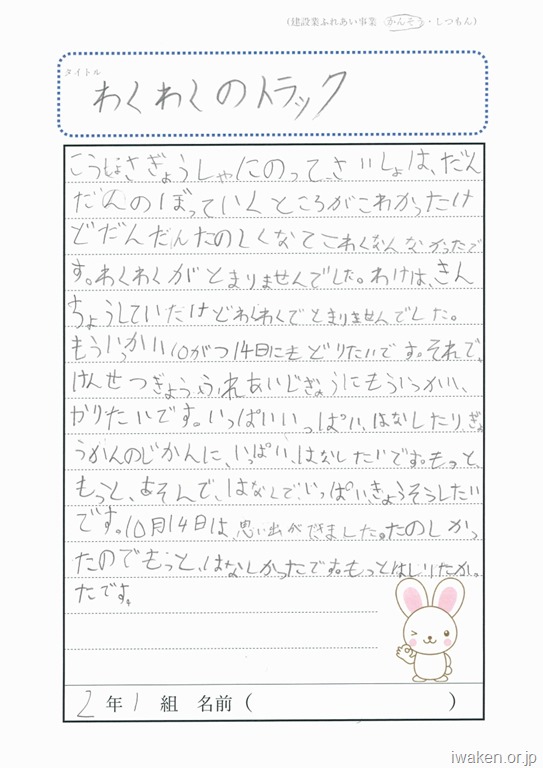 (建設業ふれあい事業 かんそう・しつもん)
タイトル
わくわくのトラック
こうしょさぎょうしゃにのって、さいしょは、だん
だんのぼっていくところがこわかったけ
どだんだんたのしくなてこわくなんなかったで
す。わくわくがとまりませんでした。わけは、きん
ちょうしていたけどわくわくでとまりませんでした。
もういっかい10がつ14日にもどりたいです。それで、
けんせつぎょうふれあいじぎょうにもういっかい、
かりたいです。いっぱいいっぱい、はなしたりぎょ
うかんのじかんに、いっぱい、はなしたいです。もっと、
もっと、あそんで、はなしで、いっぱい、きょうそうしたい
です。10月14日は、思い出ができました。たのしかっ
たのでもっと、はなしかったです。もっとはしりたか。
たです。
2年1組 名前( )
iwaken.or.jp